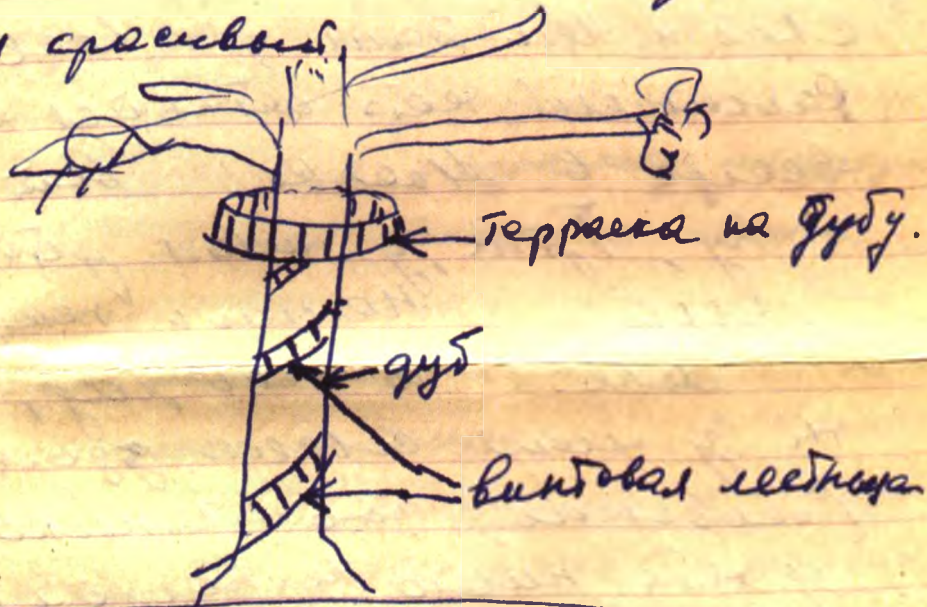 красивый
терраска на дубу.
дуб
винтовая лестница